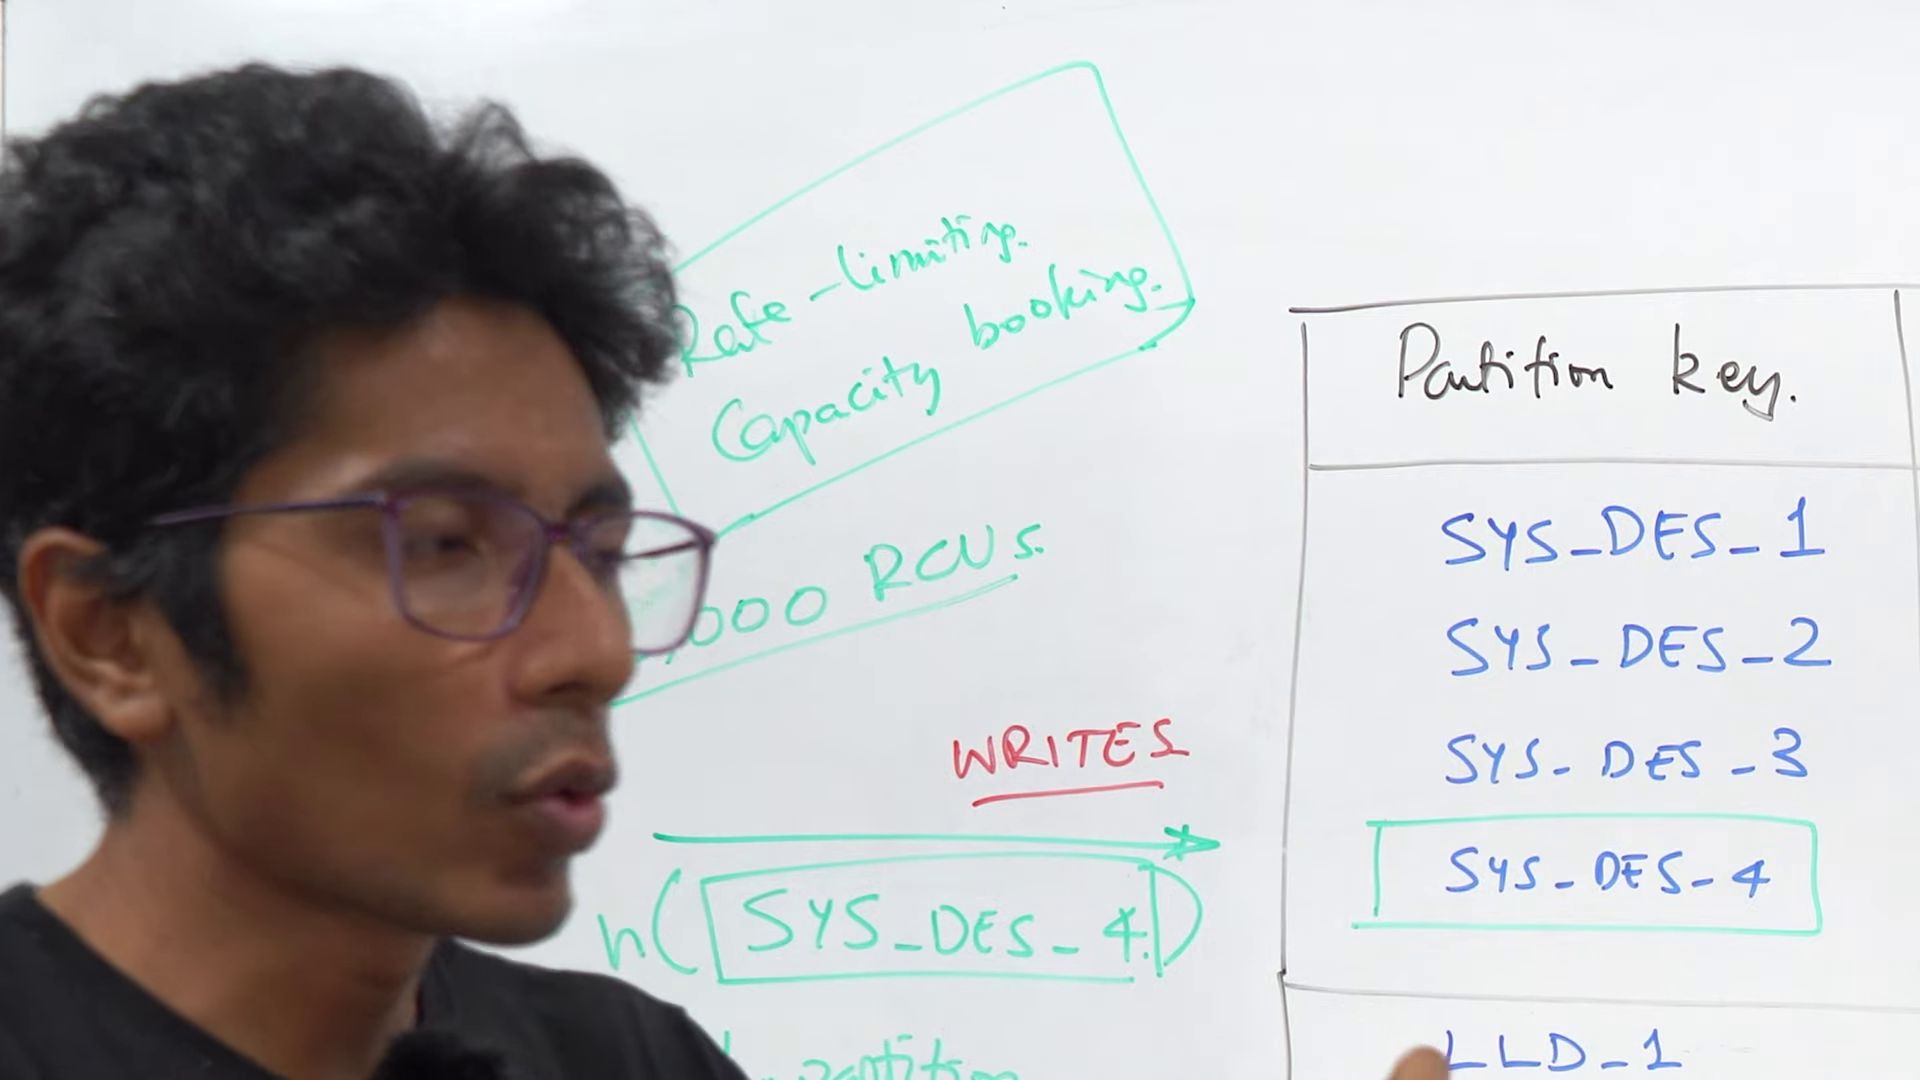 Rate-limiting.
Capacity booking.
000 RCUs.
WRITES
h(SYS_DES_4.)
partition
Partition key.
SYS_DES_1
SYS_DES_2
SYS_DES_3
SYS_DES_4
LLD_1